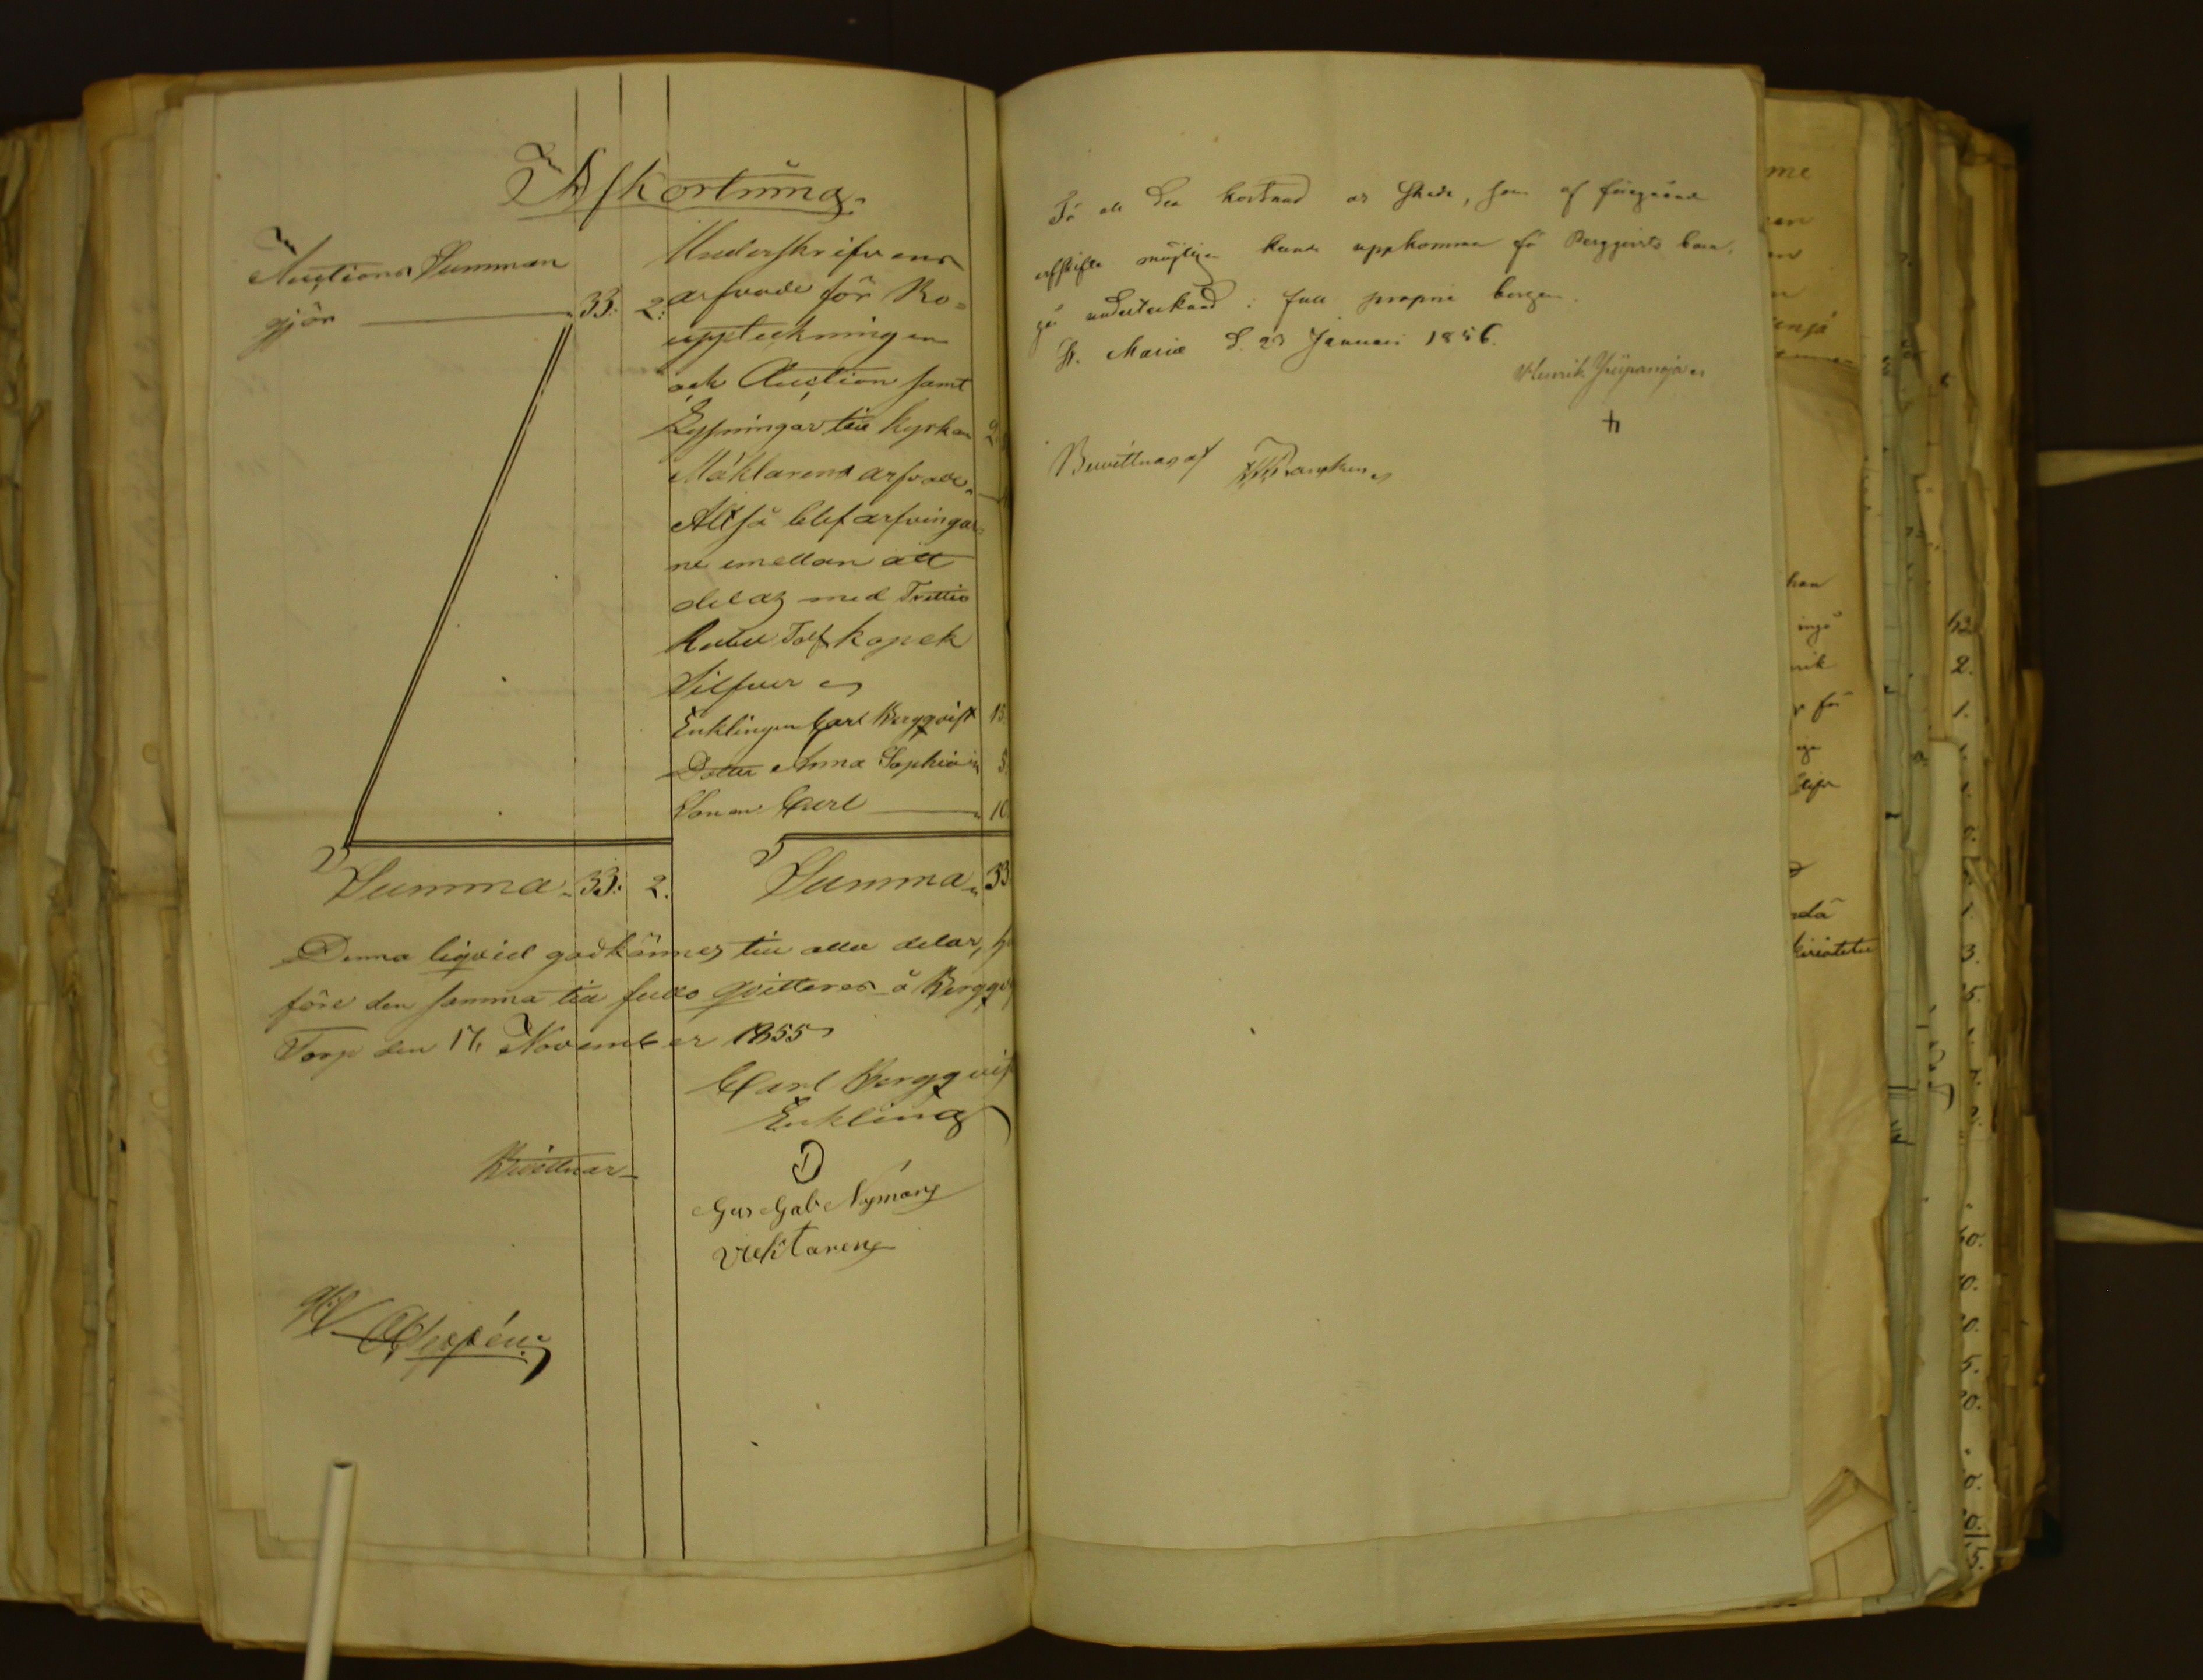 Afkortning.
Auctions Summan
gjör 33: 2:
Underskrifvens
arfvode för Bo=
uppteckningen
och Auction samt
Lysningar till kyrkan 2
Mäklarens arfvode
Altså blef arfvingar=
ne emellan att
delas med Trettio
Rubel Tolf kopek
Silfver
Enklingen Carl Bergqvist 15
Dotter Anna Sophia 5
Sonen Carl 10
Summa 33: 2. Summa 33
Denna liqvid godkännes till alla delar,
före den samma till fullo qvitteras å Bergqv
Torp den 17 November 1855
Carl Bergqvist
Enkling
Bevittnar
Gus Gab Nyman
För all den kostnad och skada, som af föregående
arfskifte möjligen kunde uppkomma för Bergqvists barn,
går undertecknad i full proprie borgen.
St. Mariæ d. 23 Januari 1856.
Henrik
Bevittnas af